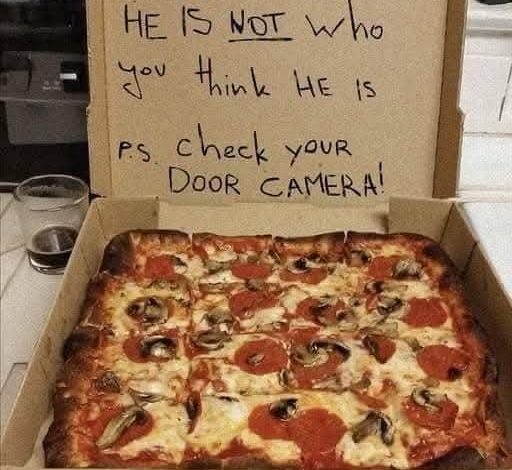 HE IS NOT who
you think HE IS
P.S. check your
DOOR CAMERA!